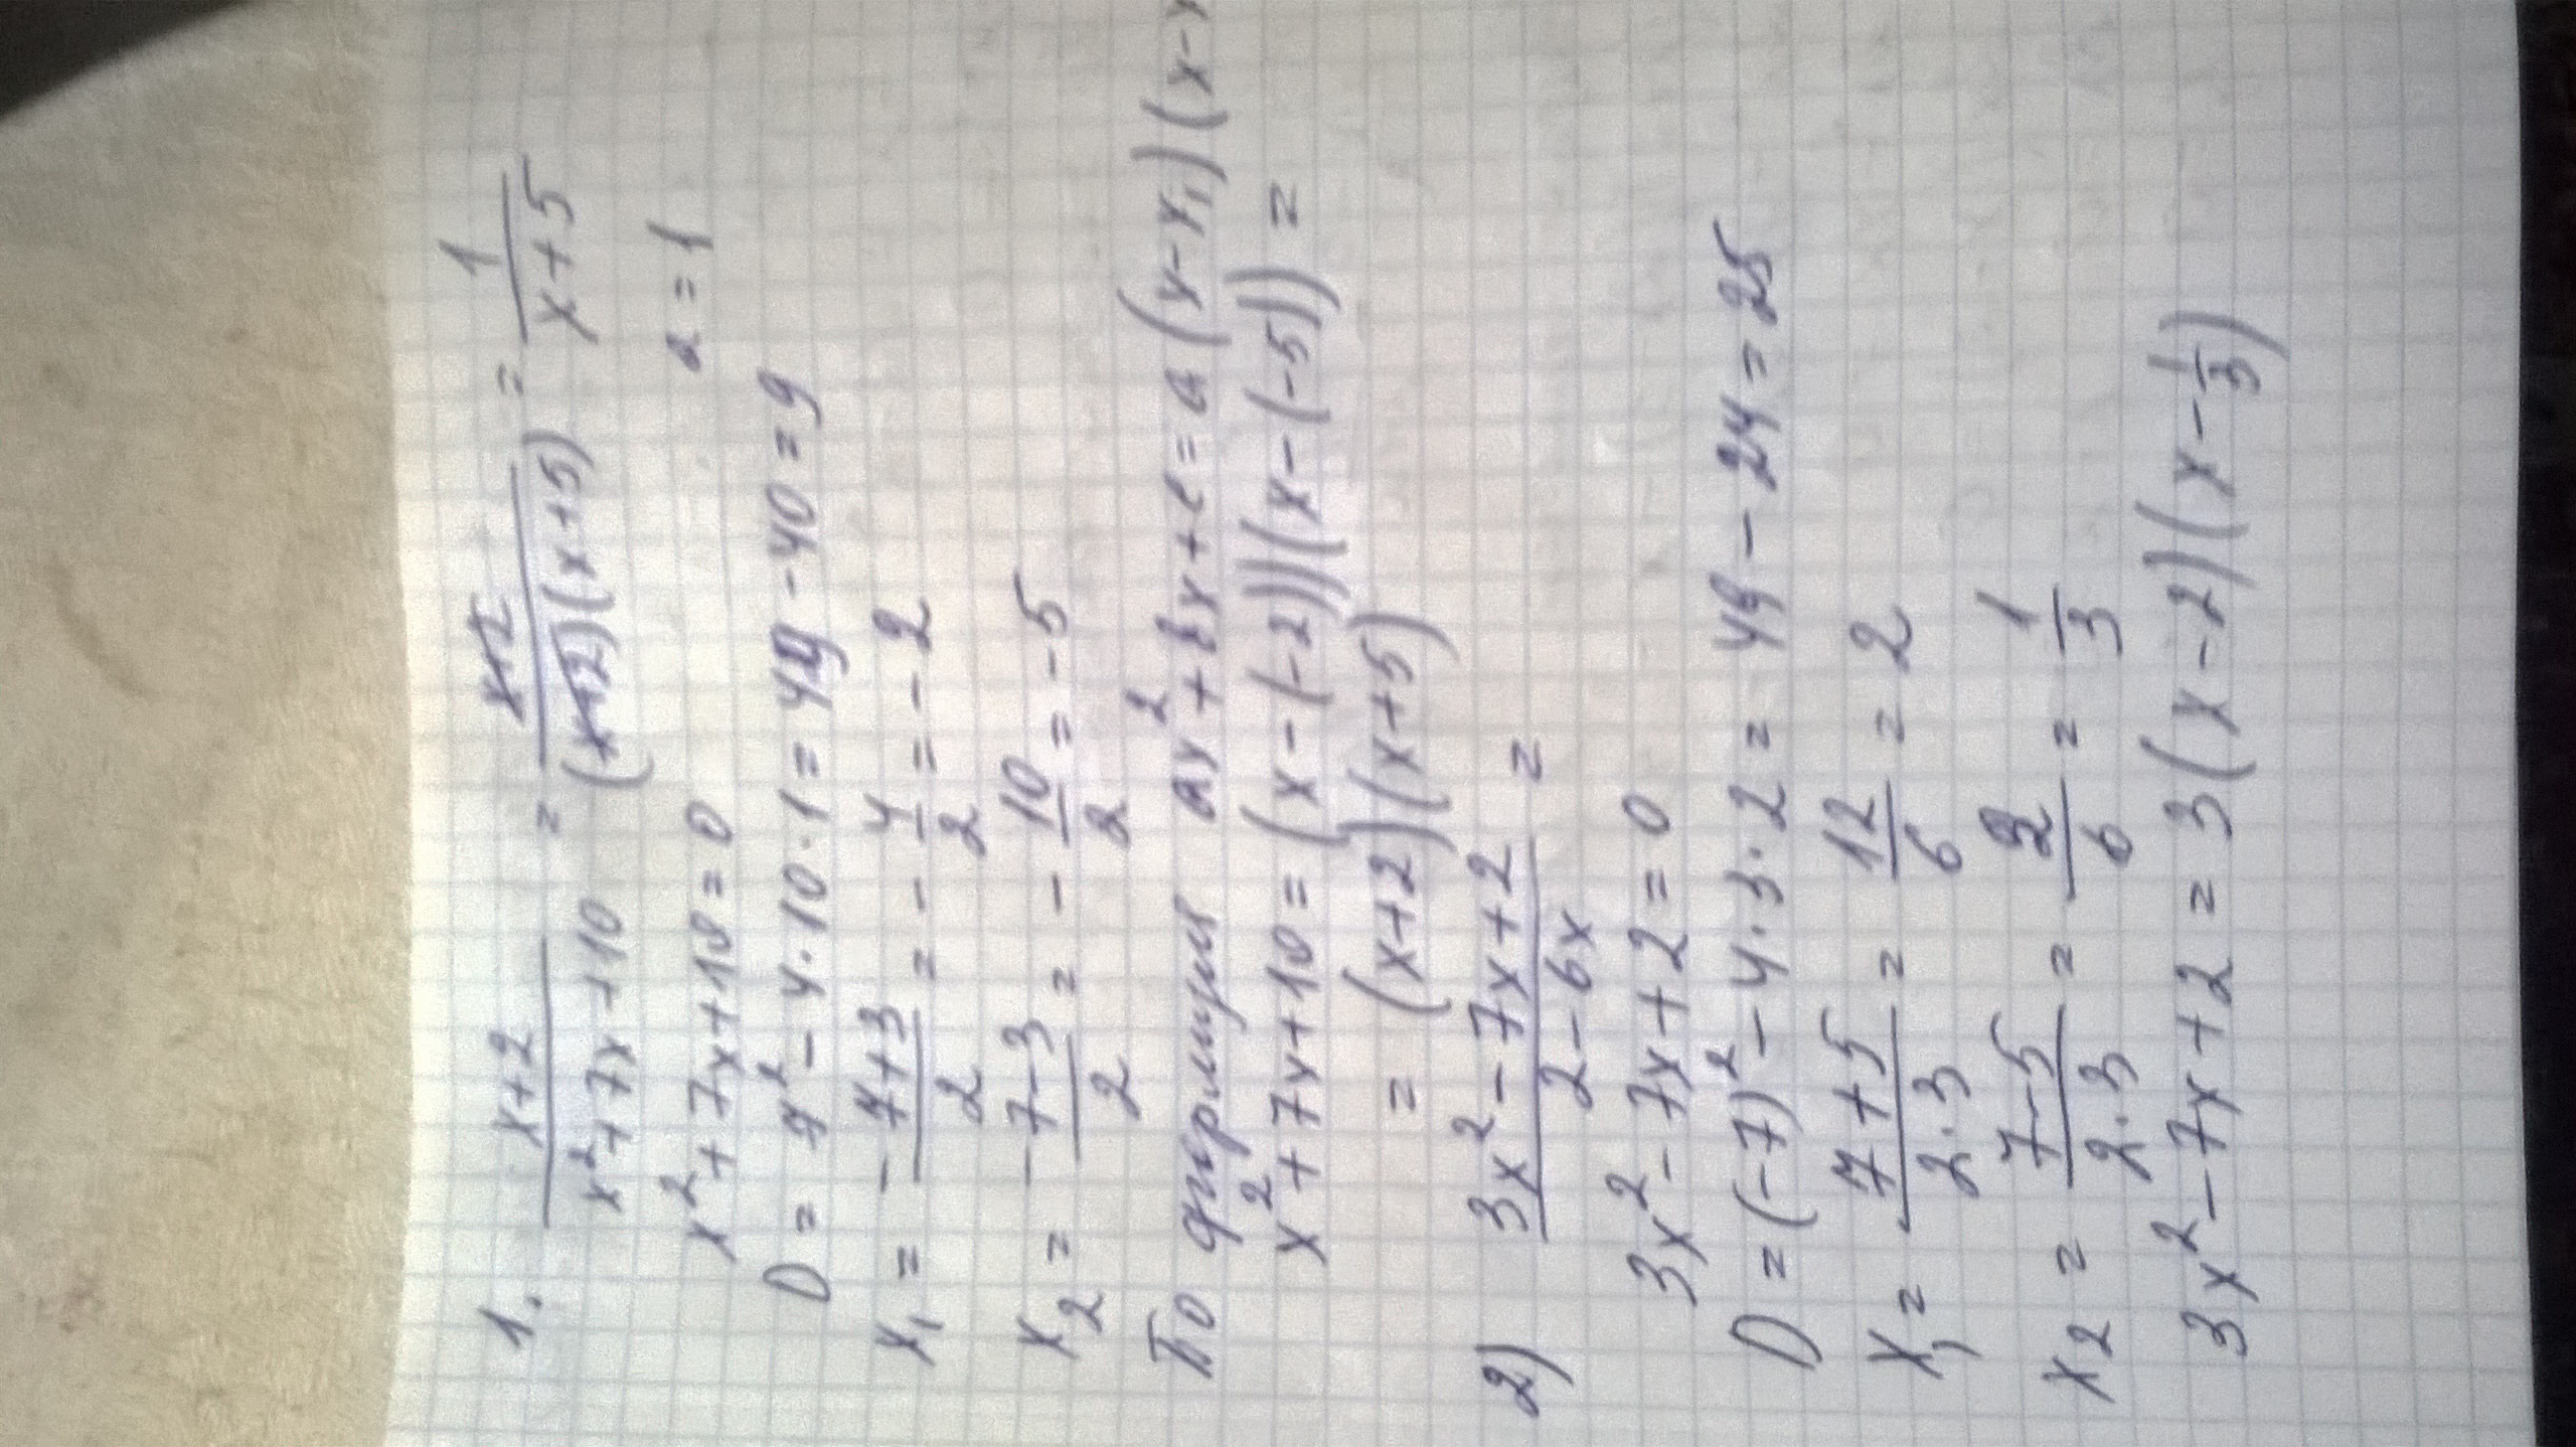 1. x+2/x²+7x+10 = x+2/(x+2)(x+5) = 1/x+5
x²+7x+10=0 a=1
D = 7² - 4·10·1 = 49 - 40 = 9
x₁ = -7+3/2 = -4/2 = -2
x₂ = -7-3/2 = -10/2 = -5
По формуле ax²+bx+c = a(x-x₁)(x-x
x²+7x+10 = (x-(-2))(x-(-5)) =
= (x+2)(x+5)
2) 3x²-7x+2/2-6x =
3x²-7x+2=0
D = (-7)² - 4·3·2 = 49 - 24 = 25
x₁ = 7+5/2·3 = 12/6 = 2
x₂ = 7-5/2·3 = 2/6 = 1/3
3x²-7x+2 = 3(x-2)(x-1/3)